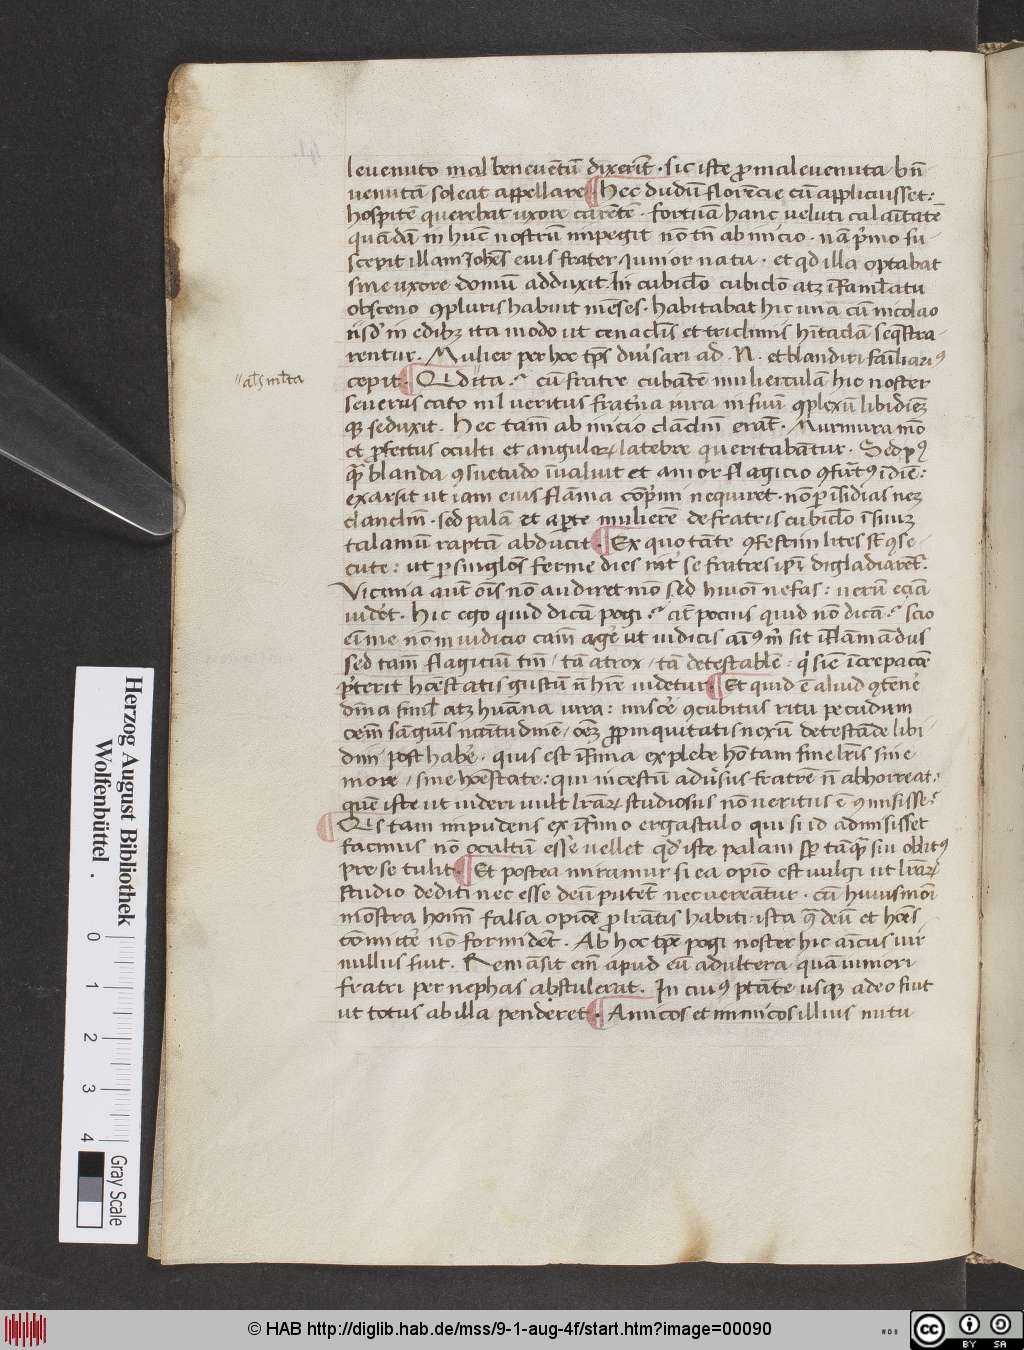 levenuto mal beneventū dixerīt · sic iste ꝓ malevenuta bn̄
venutā soleat appellare · hec dudū florēcie cū applicuisset :
hospitē querebat uxore carētē · fortūā hanc veluti calāitatē
quādā in huc̄ nostrū impegit nō tn̄ ab inicio · nā pͥmo su-
scepit illam Joh̄es eius frater Junior natu · et qd illa optabat
sine uxore domū adduxit In cubicl̄o cubicl̄o atꝫ īfaml̄atu
obsceno ꝯpluris habuit mēses · habitabat hic una cū nicolao
in edibꝫ ita modo ut cenacl̄is et tricliniis
rentur · Mulier per hoc tp̄s div̓sari ad · N · et blandiri fāiliariꝰ
cepit · Qd ita ? cū fratre cubātē mulierculā hic noster
severus cato nil veritus frat̓na iura in suū ꝯplexū libidiēꝫ
qꝫ seduxit · hec tam̄ ab inicio clācl̄m erāt · Murmura mō
et ꝓfectus oculti et anguloꝝ latebre queritabātur · Sed pꝰ
qͣ blanda ꝯsuetudo īvaluit et amor flagicio
exarsit ut iam eius flāma cōpͥmi nequiret · nō ꝑ īsidias neꝫ
clanclm̄ · sed palā et aꝑte mulierē de fratris cubicl̄o ī suūꝫ
talamū raptā abducit · Ex quo tāte
cute : ut ꝑ singl̄os ferme dies int̓ se fratres ip̄i digladiarēt̓
Vicinia aut̄ oīs nō audiret mō sed huiōi nefas : verū eciā
vidēt · hic ego quid dicā pogi ? aut pocius quid nō dicā ? scio
eī me nō in iudicio cam̄ age̓ ut iudicis aīꝰ m̄ sit īflāmādus
sed tam̄ flagiciū tm̄ / tā atrox / tā detestabl̄e :
pͥterit hōestatis gustū n̄ hr̄e videtur · Et quid ē aliud ꝯtēne̓
divīa siml̄ atꝫ huāna iura : misce̓ ꝯcubitus ritu pecudum
cem̄ sāguīs nātitudinē / oēꝫ ꝓpinquitatis nexū detestāde libi-
dini post habe̓ · quis est īfima ex plebe hō tam sine lr̄is sine
more / sine hōestate : qui incestū adv̓sus fratrē n̄ abhorreat ?
quē iste ut videri vult lr̄aꝝ studiosus nō veritus ē ꝯmisisse ?
Qis tam impudens ex īfimo ergastulo qui si id admisisset
facinus nō ocultū esse vellet qd̓ iste palam tāqͣ sui oblitꝰ
pre se tulit · Et postea miramur si ea opīo est vulgi ut lr̄aꝝ
studio dediti nec esse deū putēt nec vereātur · cū huiusmōi
mōstra hoīm falsa opiōe ꝓ lr̄atis habiti · ista q̄ deū et hōēs
cōmicte̓ nō formidēt · Ab hoc tp̄e pogi noster hic aīcus vir
nullus fuit · Remāsit em̄ apud eū adultera quā iuniori
fratri per nephas abstulerat · In cuiꝰ ptāte usqꝫ adeo fuit
ut totus ab illa penderet · Amicos et inimicos illius nutu
Herzog August Bibliothek
Wolfenbüttel .
0
1
2
3
4
Gray Scale
© HAB http://diglib.hab.de/mss/9-1-aug-4f/start.htm?image=00090
WDB
cc
BY SA